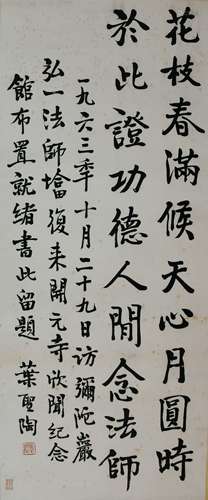 花枝春滿候天心月圓時
於此證功德人間念法師
一九六三年十月二十九日訪彌陀巖
弘一法師墖復来開元寺欣聞紀念
館布置就緒書此留題 葉聖陶